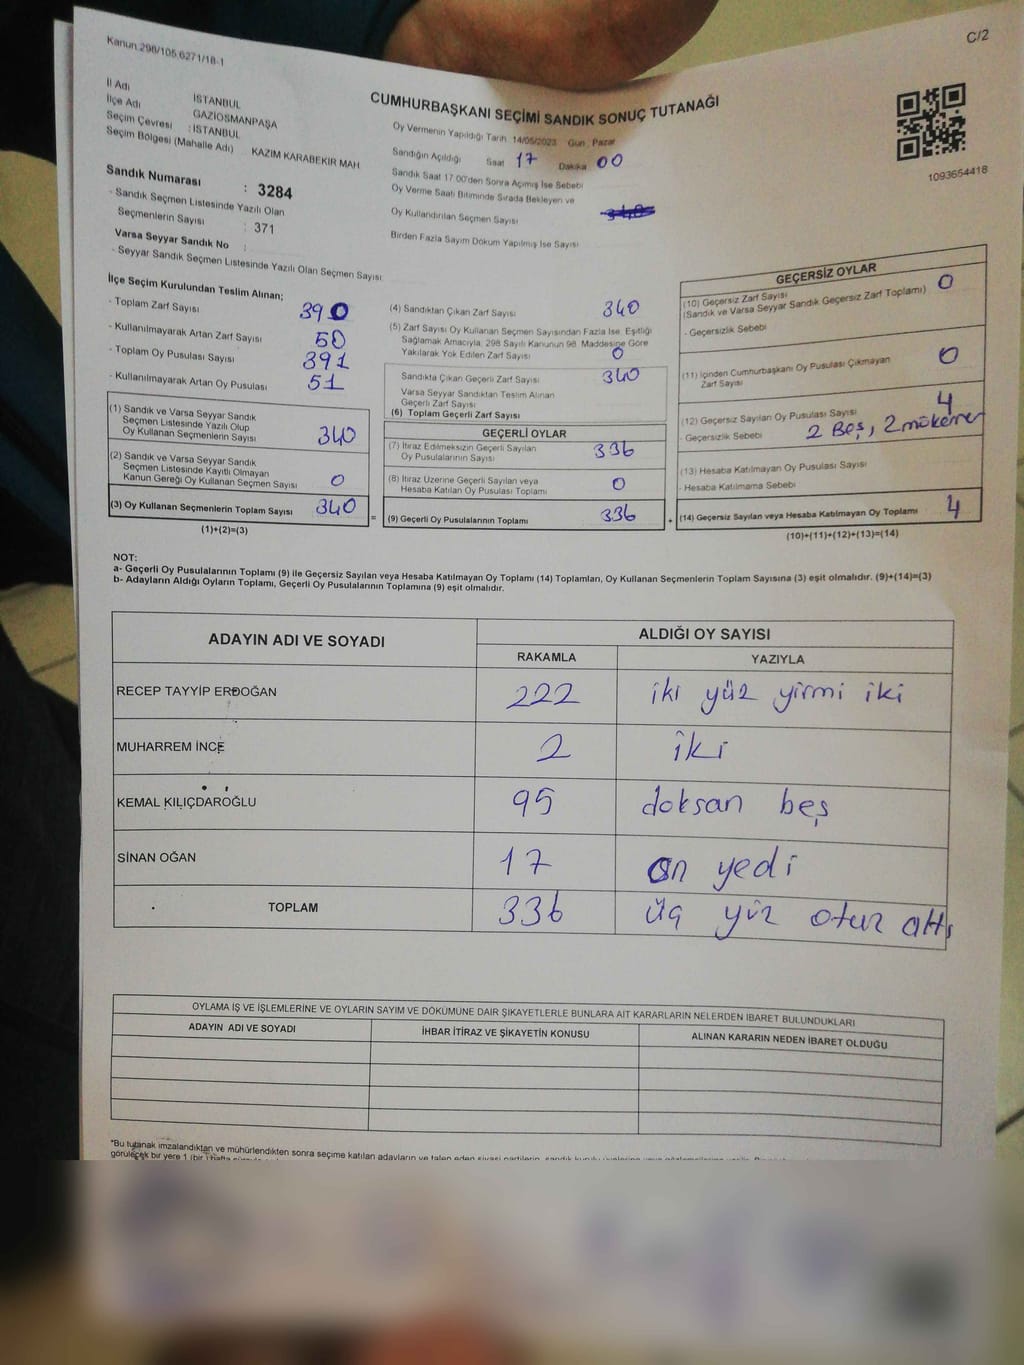 Kanun 298/105,6271/18-1
C/2
CUMHURBAŞKANI SEÇİMİ SANDIK SONUÇ TUTANAĞI
İl Adı : İSTANBUL
İlçe Adı GAZİOSMANPAŞA
Seçim Çevresi : İSTANBUL
Seçim Bölgesi (Mahalle Adı) KAZIM KARABEKİR MAH
Sandık Numarası : 3284
- Sandık Seçmen Listesinde Yazılı Olan
Seçmenlerin Sayısı : 371
Varsa Seyyar Sandık No :
- Seyyar Sandık Seçmen Listesinde Yazılı Olan Seçmen Sayısı
Oy Vermenin Yapıldığı Tarih 14/05/2023 Gün Pazar
Sandığın Açıldığı Saat 17 Dakika 00
Sandık Saat 17.00'den Sonra Açılmış İse Sebebi
Oy Verme Saati Bitiminde Sırada Bekleyen ve
Oy Kullandırılan Seçmen Sayısı
Birden Fazla Sayım Döküm Yapılmış İse Sayısı
1093654418
İlçe Seçim Kurulundan Teslim Alınan;
- Toplam Zarf Sayısı 390
- Kullanılmayarak Artan Zarf Sayısı 50
- Toplam Oy Pusulası Sayısı 391
- Kullanılmayarak Artan Oy Pusulası 51
(1) Sandık ve Varsa Seyyar Sandık
Seçmen Listesinde Yazılı Olup
Oy Kullanan Seçmenlerin Sayısı 340
(2) Sandık ve Varsa Seyyar Sandık
Seçmen Listesinde Kayıtlı Olmayan
Kanun Gereği Oy Kullanan Seçmen Sayısı 0
(3) Oy Kullanan Seçmenlerin Toplam Sayısı 340
(1)+(2)=(3)
(4) Sandıktan Çıkan Zarf Sayısı 340
(5) Zarf Sayısı Oy Kullanan Seçmen Sayısından Fazla İse, Eşitliği
Sağlamak Amacıyla, 298 Sayılı Kanunun 98. Maddesine Göre
Yakılarak Yok Edilen Zarf Sayısı 0
Sandıkta Çıkan Geçerli Zarf Sayısı 340
Varsa Seyyar Sandıktan Teslim Alınan
Geçerli Zarf Sayısı
(6) Toplam Geçerli Zarf Sayısı
GEÇERLİ OYLAR
(7) İtiraz Edilmeksizin Geçerli Sayılan
Oy Pusulalarının Sayısı 336
(8) İtiraz Üzerine Geçerli Sayılan veya
Hesaba Katılan Oy Pusulası Toplamı 0
=
(9) Geçerli Oy Pusulalarının Toplamı 336
+
GEÇERSİZ OYLAR
(10) Geçersiz Zarf Sayısı
(Sandık ve Varsa Seyyar Sandık Geçersiz Zarf Toplamı) 0
- Geçersizlik Sebebi
(11) İçinden Cumhurbaşkanı Oy Pusulası Çıkmayan
Zarf Sayısı 0
(12) Geçersiz Sayılan Oy Pusulası Sayısı 4
- Geçersizlik Sebebi 2 Beş, 2 mükerrer
(13) Hesaba Katılmayan Oy Pusulası Sayısı
- Hesaba Katılmama Sebebi
(14) Geçersiz Sayılan veya Hesaba Katılmayan Oy Toplamı 4
(10)+(11)+(12)+(13)=(14)
NOT:
a- Geçerli Oy Pusulalarının Toplamı (9) ile Geçersiz Sayılan veya Hesaba Katılmayan Oy Toplamı (14) Toplamları, Oy Kullanan Seçmenlerin Toplam Sayısına (3) eşit olmalıdır. (9)+(14)=(3)
b- Adayların Aldığı Oyların Toplamı, Geçerli Oy Pusulalarının Toplamına (9) eşit olmalıdır.
ADAYIN ADI VE SOYADI ALDIĞI OY SAYISI
RAKAMLA YAZIYLA
RECEP TAYYİP ERDOĞAN 222 iki yüz yirmi iki
MUHARREM İNCE 2 iki
KEMAL KILIÇDAROĞLU 95 doksan beş
SİNAN OĞAN 17 on yedi
TOPLAM 336 üç yüz otuz altı
OYLAMA İŞ VE İŞLEMLERİNE VE OYLARIN SAYIM VE DÖKÜMÜNE DAİR ŞİKAYETLERLE BUNLARA AİT KARARLARIN NELERDEN İBARET BULUNDUKLARI
ADAYIN ADI VE SOYADI İHBAR İTİRAZ VE ŞİKAYETİN KONUSU ALINAN KARARIN NEDEN İBARET OLDUĞU
*Bu tutanak imzalandıktan ve mühürlendikten sonra seçime katılan adayların ve talep eden siyasi partilerin, sandık kurulu
görülecek bir yere 1 (bir) hafta